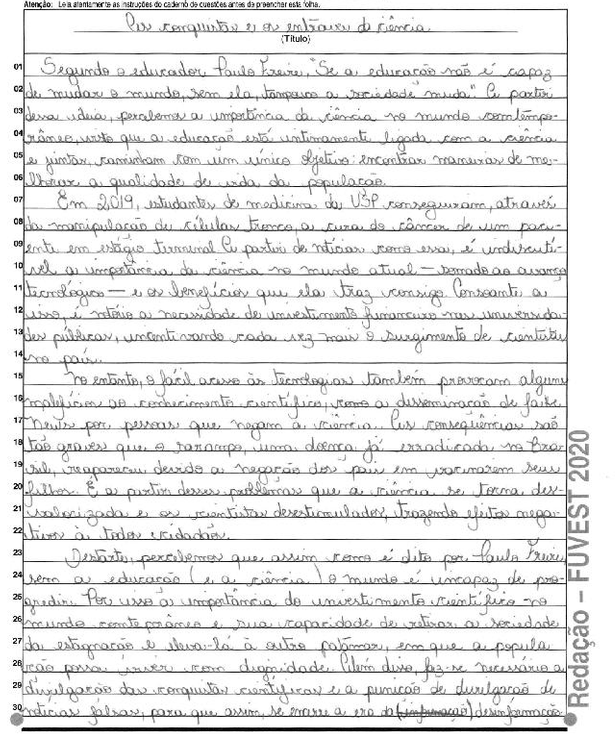 Atenção: Leia atentamente as instruções do caderno de questões antes de preencher esta folha.
As conquistas e os entraves da ciência
(Título)
01 Segundo o educador Paulo Freire, "Se a educação não é capaz
02 de mudar o mundo, sem ela, tampouco a sociedade muda". A partir
03 dessa ideia, percebemos a importância da ciência no mundo contempo-
04 râneo, visto que a educação está intimamente ligada com a ciência
05 e juntas, caminham com um único objetivo: encontrar maneiras de me-
06 lhorar a qualidade de vida da população.
07 Em 2019, estudantes de medicina da USP conseguiram, através
08 da manipulação de células tronco, a cura do câncer de um paci-
09 ente em estágio terminal. A partir de notícias como essa, é indiscutí-
10 vel a importância da ciência no mundo atual — somado ao avanço
11 tecnológico — e os benefícios que ela traz consigo. Consoante a
12 isso, é notório a necessidade de investimento financeiro nas universida-
13 des públicas, incentivando cada vez mais o surgimento de cientistas
14 no país.
15 No entanto, o fácil acesso às tecnologias também provocam alguns
16 malefícios ao conhecimento científico, como a disseminação de fake
17 news por pessoas que negam a ciência. As consequências são
18 tão graves que o sarampo, uma doença já erradicada no Bra-
19 sil, reapareceu devido a negação dos pais em vacinarem seus
20 filhos. É a partir desses problemas que a ciência se torna des-
21 valorizada e os cientistas desestimulados, trazendo efeitos nega-
22 tivos à todos cidadãos.
23 Destarte, percebemos que assim como é dito por Paulo Freire,
24 sem a educação (e a ciência) o mundo é incapaz de pro-
25 gredir. Por isso a importância do investimento científico no
26 mundo contemporâneo e sua capacidade de retirar a sociedade
27 da estagnação e levá-la à outro patamar, em que a popula
28 ção possa viver com dignidade. Além disso, faz-se necessário a
29 divulgação das conquistas científicas e a punição de divulgação de
30 notícias falsas, para que assim, se encerre a era da (informação) desinformação.
Redação – FUVEST 2020